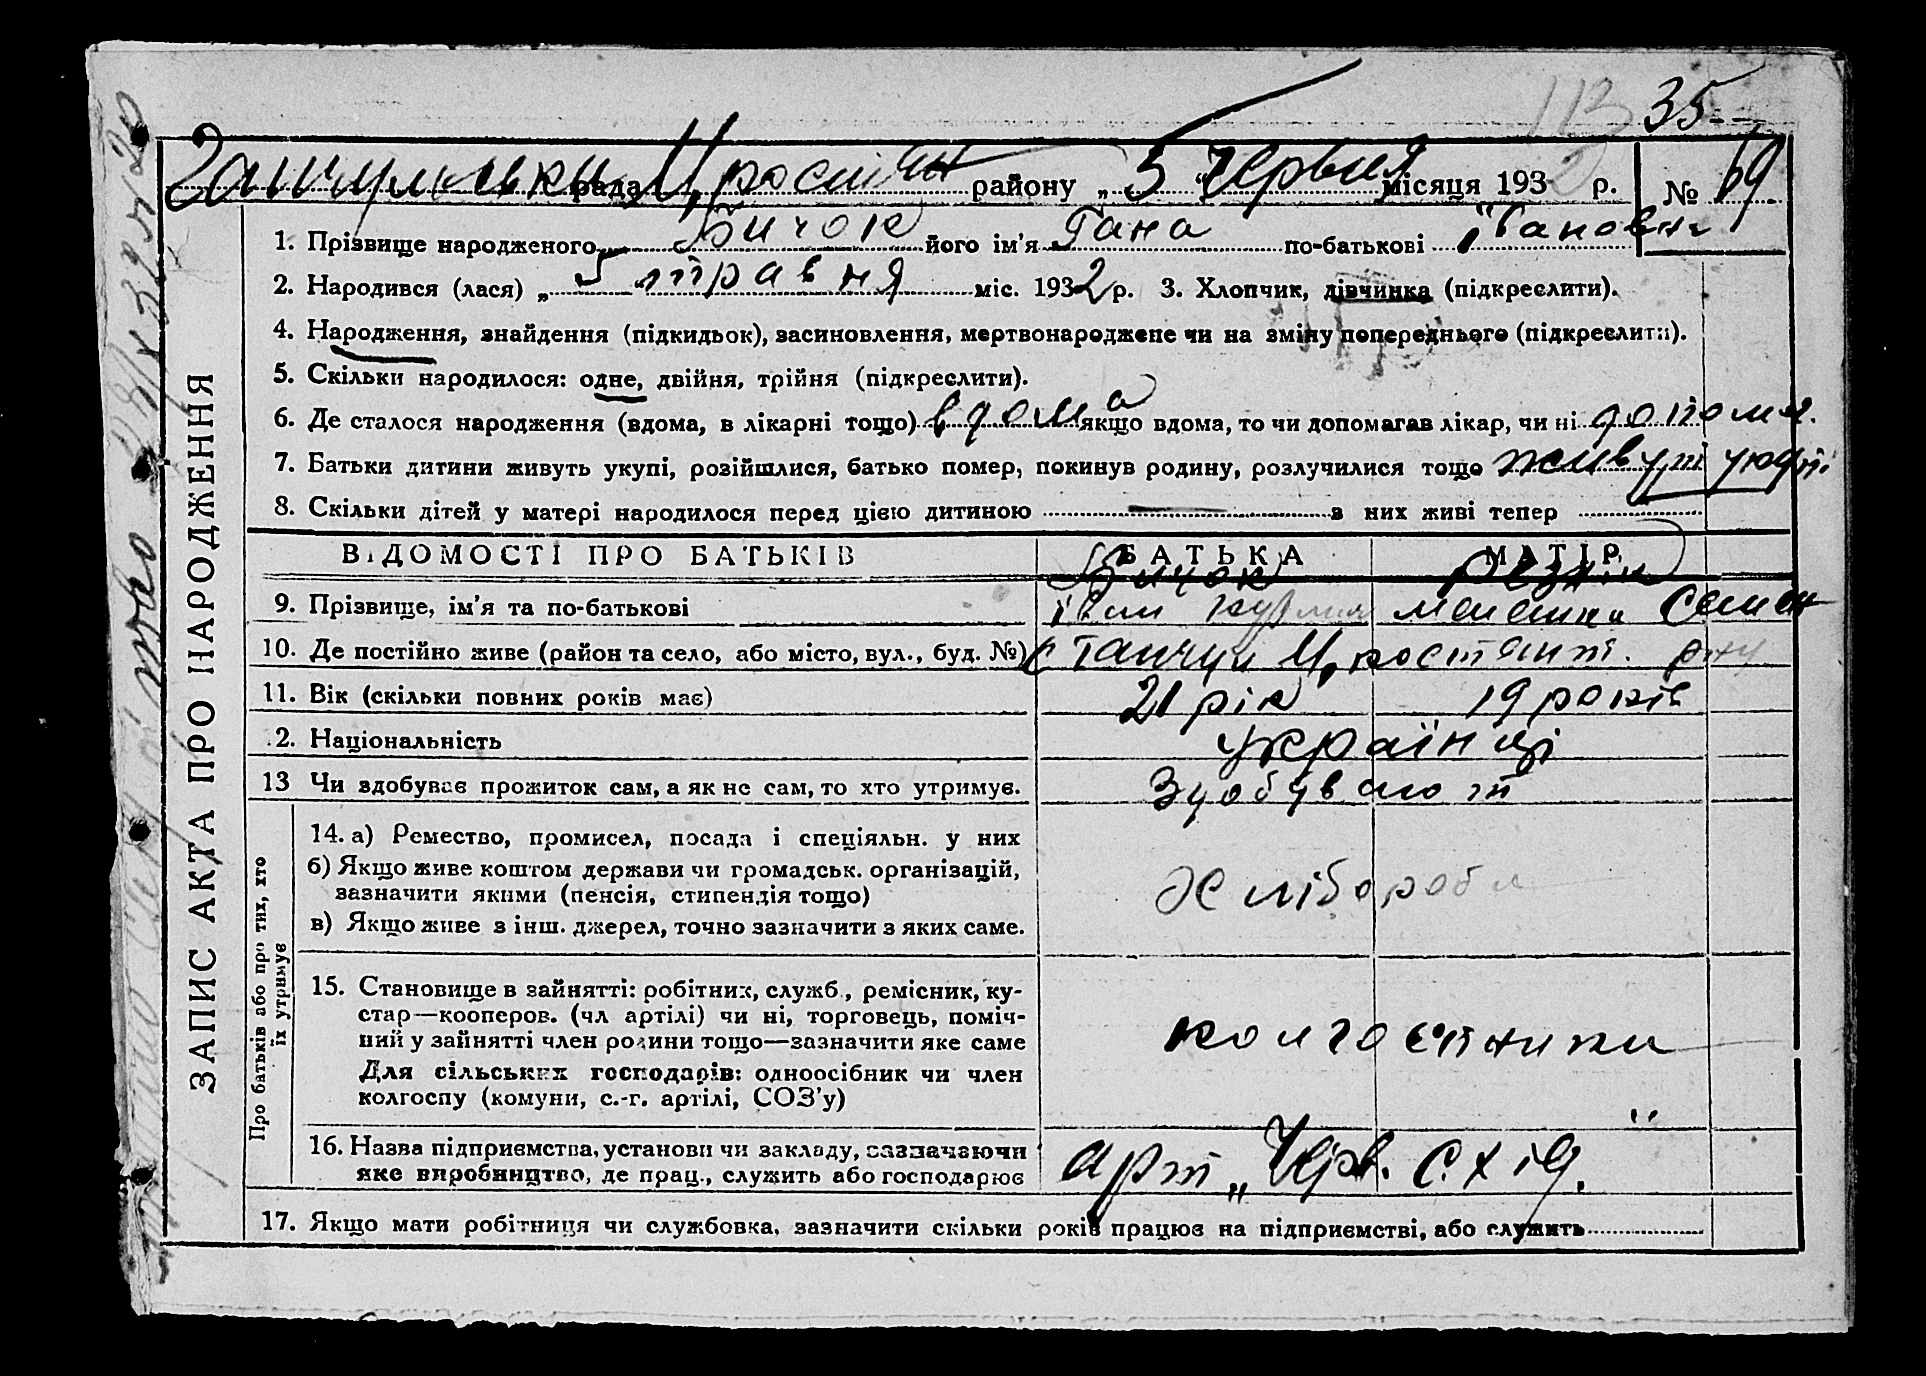 113 35
рада районі „ 5 “ Червня місяця 1932 р. № 69
1. Прізвище народженого Бичок його ім'я Гана по-батькові Івановна
2. Народився (лася) „ 5 травня міс. 1932 р. 3. Хлопчик, дівчинка (підкреслити).
4. Народження, знайдення (підкидьок), засиновлення, мертвонароджене чи на зміну попереднього (підкреслити).
5. Скільки народилося: одне, двійня, трійня (підкреслити).
6. Де сталося народження (вдома, в лікарні тощо) вдома якщо вдома, то чи допомагав лікар, чи ні
7. Батьки дитини живуть укупі, розійшлися, батько помер, покинув родину, розлучилися тощо живут
8. Скільки дітей у матері народилося перед цією дитиною — з них живі тепер
ВІДОМОСТІ ПРО БАТЬКІВ БАТЬКА МАТІР
Бичок
9. Прізвище, ім'я та по-батькові Іван
10. Де постійно живе (район та село, або місто, вул., буд. №)
11. Вік (скільки повних років має) 21 рік 19 років
12. Національність українці
13 Чи здобуває прожиток сам, а як не сам, то хто утримує. Здобувают
14. а) Ремество, промисел, посада і спеціяльн. у них
б) Якщо живе коштом держави чи громадськ. організацій,
зазначити якими (пенсія, стипендія тощо)
Хлібороби
в) Якщо живе з інш. джерел, точно зазначити з яких саме.
15. Становище в зайнятті: робітник, служб., ремісник, ку-
стар—кооперов. (чл артілі) чи ні, торговець, поміч-
ний у зайнятті член родини тощо—зазначити яке саме
колгоспники
Для сільських господарів: одноосібник чи член
колгоспу (комуни, с.-г. артілі, СОЗ'у)
16. Назва підприємства, установи чи закладу, зазначаючи
яке виробництво, де прац., служить або господарює
арт „Черв. Схід.“
17. Якщо мати робітниця чи службовка, зазначити скільки років працює на підприємстві, або служить
ЗАПИС АКТА ПРО НАРОДЖЕННЯ
Про батьків або про тих, хто
їх утримує